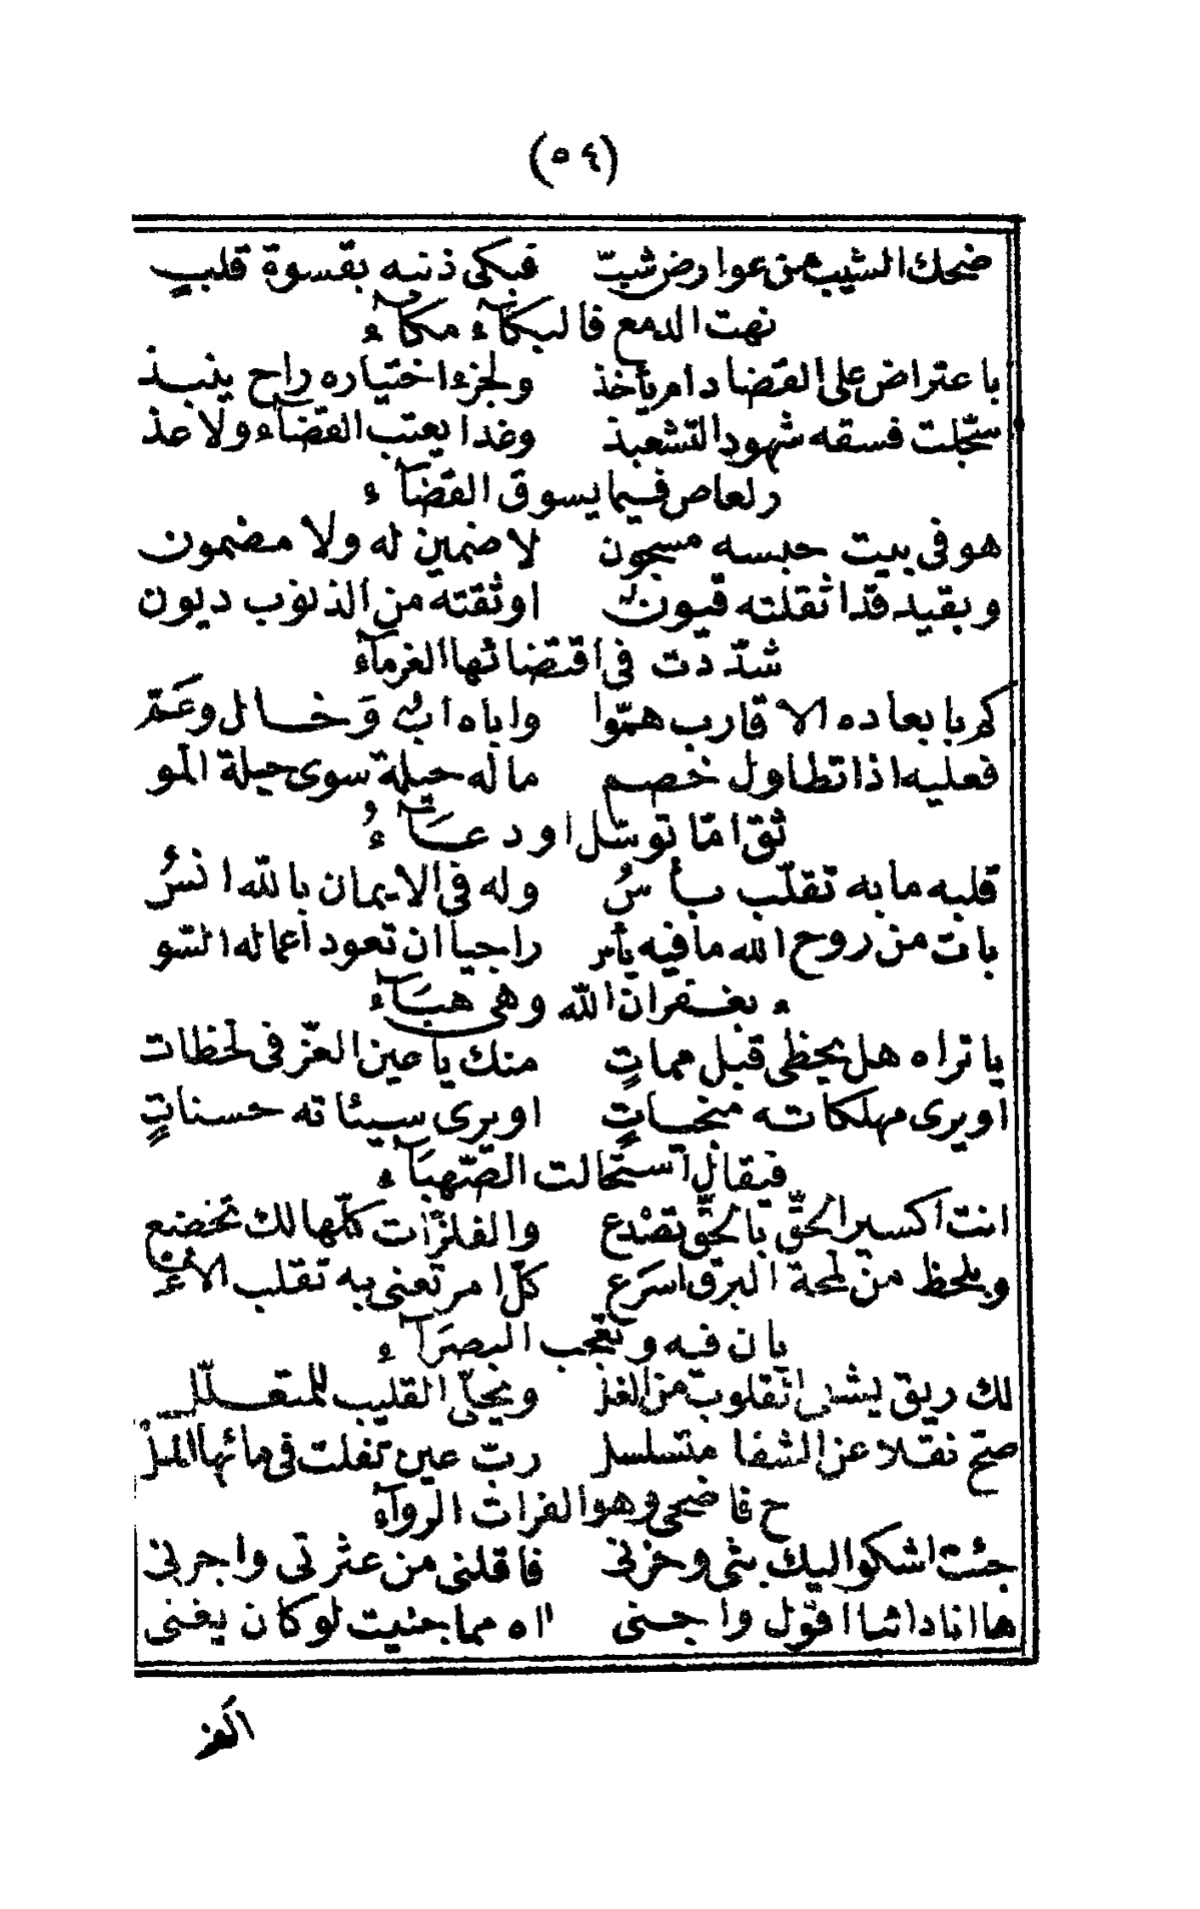 (٥٤)
ضحك الشيب من عوارض شبّ فبكى ذنبه بقسوة قلبٍ
نهت الدمع فالبكآء مكآء
باعتراض على القضا دام يأخذ ولجزء اختياره راح ينبذ
سجّلت فسقه شهود التشعبذ وغدا يعتب القضآء ولا عذ
ر لعاص فيما يسوق القضآء
هو فى بيت حبسه مسجون لا ضمين له ولا مضمون
وبقيد قد اثقلته قيون اوثقته من الذنوب ديون
شدّدت فى اقتضائها الغرمآء
كم بابعاده الاقارب همّوا واباه ابٌ وَخال وعَمّ
فعليه اذا تطاول خصم ماله حيلة سوى حيلة المو
ثق امّا توسّل او دعَآءُ
قلبه ما به تقلّب بأسُ وله فى الايمان بالله انسُ
بات من روح الله ما فيه يأس راجيا ان تعود أعماله السّو
ء بغفران الله وهى هبَآء
يا تراه هل يحظى قبل مماتٍ منك يا عين العزّ فى لحظات
أو يرى مهلكاته منجياتٍ او يرى سيئاته حسناتٍ
فيقال استحالت الصّهبَآء
انت اكسير الحقّ بالحقّ تصْدع والفلزّات كلّها لك تخضع
وبلحظ من لمحة البرق اسرَع كلّ امر تعنى به تقلب الأعْ
يان فيه وتعجب البصرَآء
لك ريق يشفى القلوب من الغلّ ويجلّى القليب للمتعلّل
صحّ نقلا عن الشفا متسلسل ربّ عين تفلت فى مائها المل
ح فاضحى وهو الفرات الرّوآء
جئت اشكو اليك بثى وحزنى فاقلنى من عثرتى واجرنى
ها انا دائما اقول واجنى اه مما جنيت لو كان يغنى